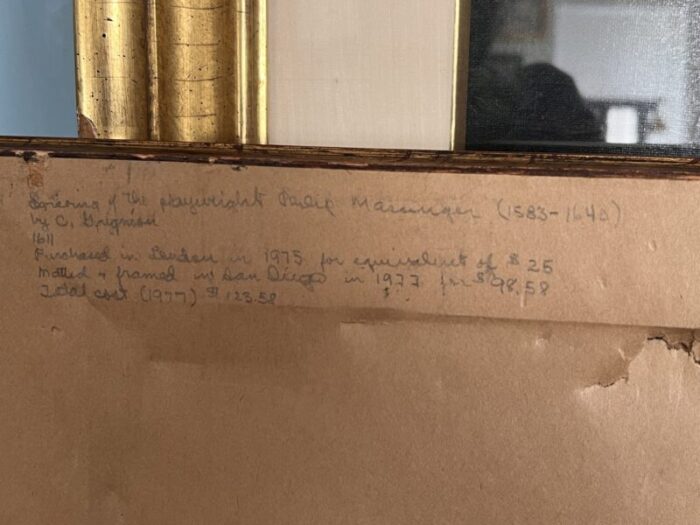 Engraving of the playwright Philip Massinger (1583-1640)
by C. Grignion
1611
Purchased in London in 1975 for equivalent of $25
Matted & framed in San Diego in 1977 for $98.58
Total cost (1977) $123.58